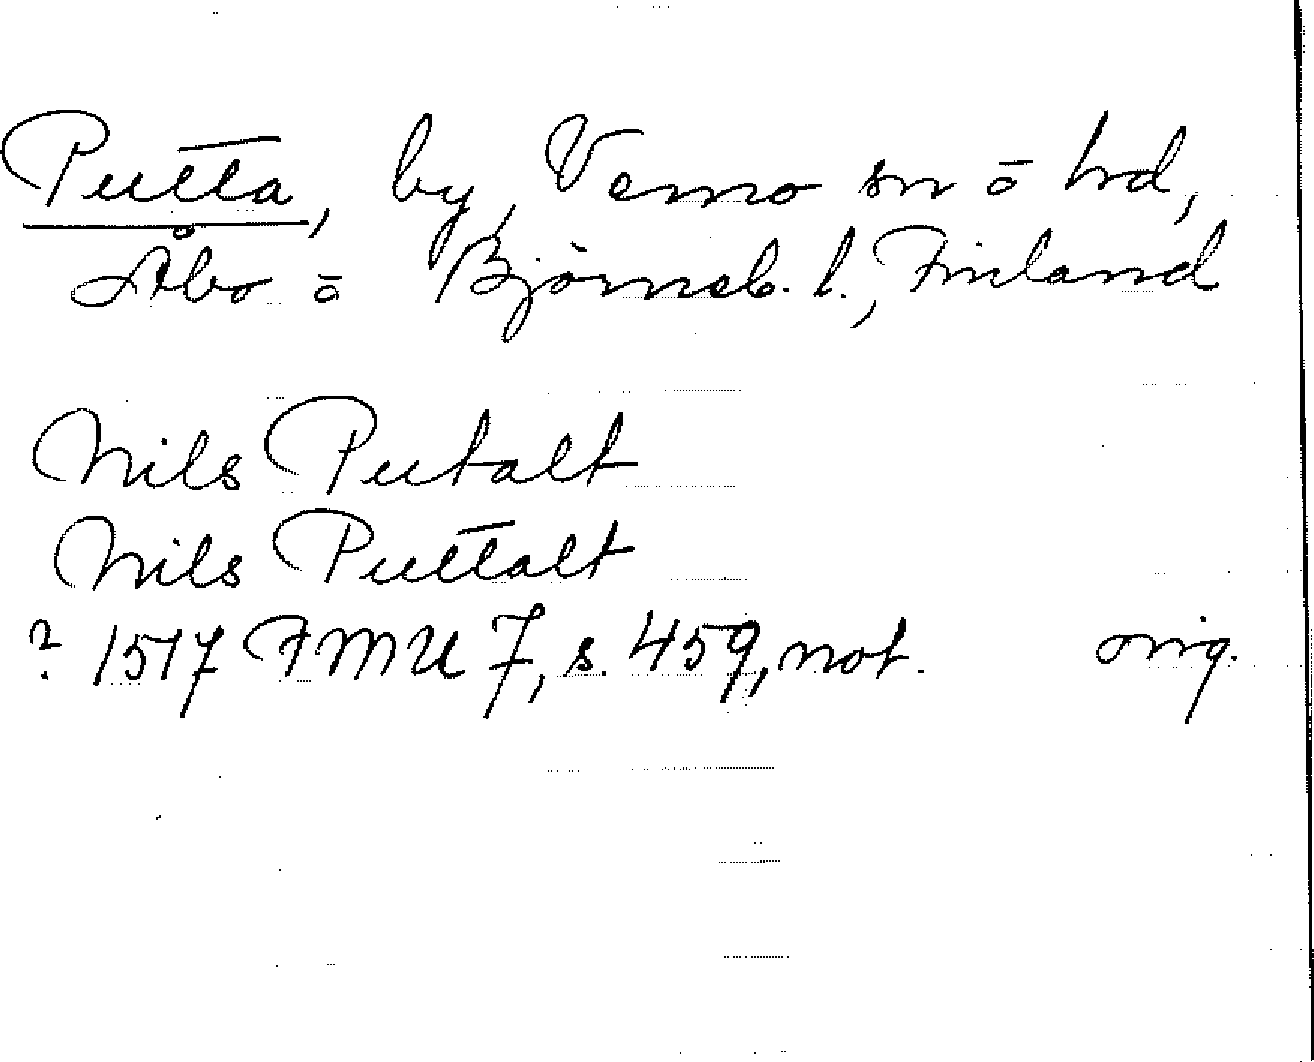 Putta, by, Vemo sn o hd,
Åbo o Björneb. l., Finland
Nils Putalt
Nils Puttalt
? 1517 FMU 7, s. 459, not. orig.